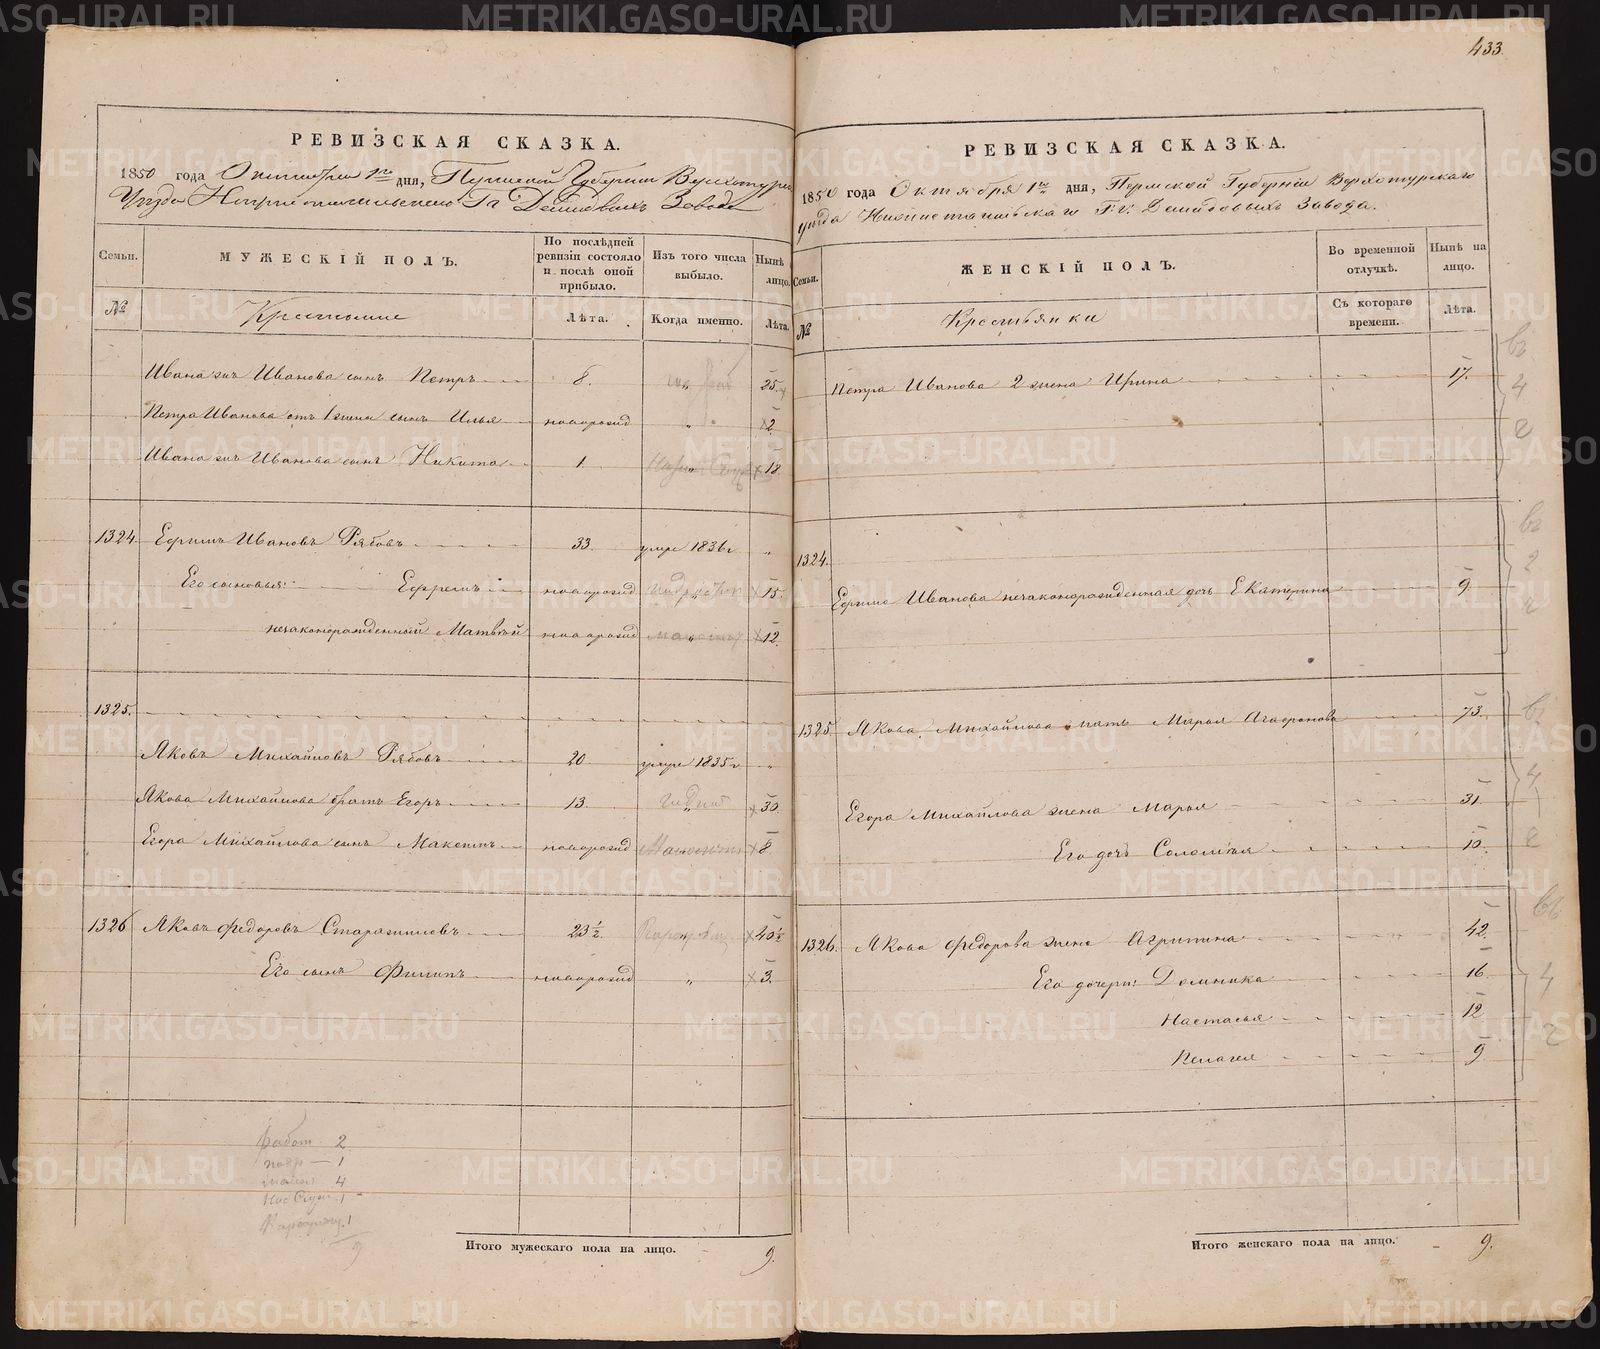 433
РЕВИЗСКАЯ СКАЗКА.
1850 года Октября 1го дня, Пермской Губернии Верхотурс
Уезда Нижнетагильского Гг Демидовыхъ Завода
Семьи.
МУЖЕСКІЙ ПОЛЪ.
По послѣдней ревизіи состояло и послѣ оной прибыло.
Изъ того числа выбыло.
Нынѣ лицо.
№
Крестьяне
Лѣта.
Когда именно.
Лѣта.
Ивана Иванова сынъ Петръ 8. 25.
Петра Иванова отъ 1 жены сынъ Илья новорожд „ 2
Ивана Иванова сынъ Никита 1. 18.
1324. Ефимъ Ивановъ Рябовъ 33. умре 1836г „
Его сыновья: Ефремъ новорожд „ 15.
незаконорожденный Матвѣй новорожд „ 12.
1325.
Яковъ Михайловъ Рябовъ 20 умре 1835г „
Якова Михайлова братъ Егоръ 13. „ 30.
Егора Михайлова сынъ Максимъ новорожд „ 8
1326 Яковъ Федоровъ Старозимовъ 23 1/2 „ 40 1/2
Его сынъ Филипъ новорожд „ 3.
Работ 2
подр — 1
мало 4
1
1
9
Итого мужескаго пола на лицо. 9.
РЕВИЗСКАЯ СКАЗКА.
1850 года Октября 1го дня, Пермской Губерніи Верхотурскаго
уѣзда Нижнетагильскаго Г.г. Демидовыхъ Завода.
Семьи.
ЖЕНСКІЙ ПОЛЪ.
Во временной отлучкѣ.
Нынѣ на лицо.
№
Крестьянки
Съ котораго времени.
Лѣта.
Петра Иванова 2 жена Ирина 17.
1324.
Ефима Иванова незаконорожденная дочь Екатерина 9.
1325 Якова Михайлова мать Марья Агафонова 73.
Егора Михайлова жена Марья 31.
Его дочь Соломія 10.
1326. Якова Федорова жена Агрипина 42
Его дочери: Домника 16.
Настасья 12
Пелагея 9
Итого женскаго пола на лицо. 9.
METRIKI.GASO-URAL.RU